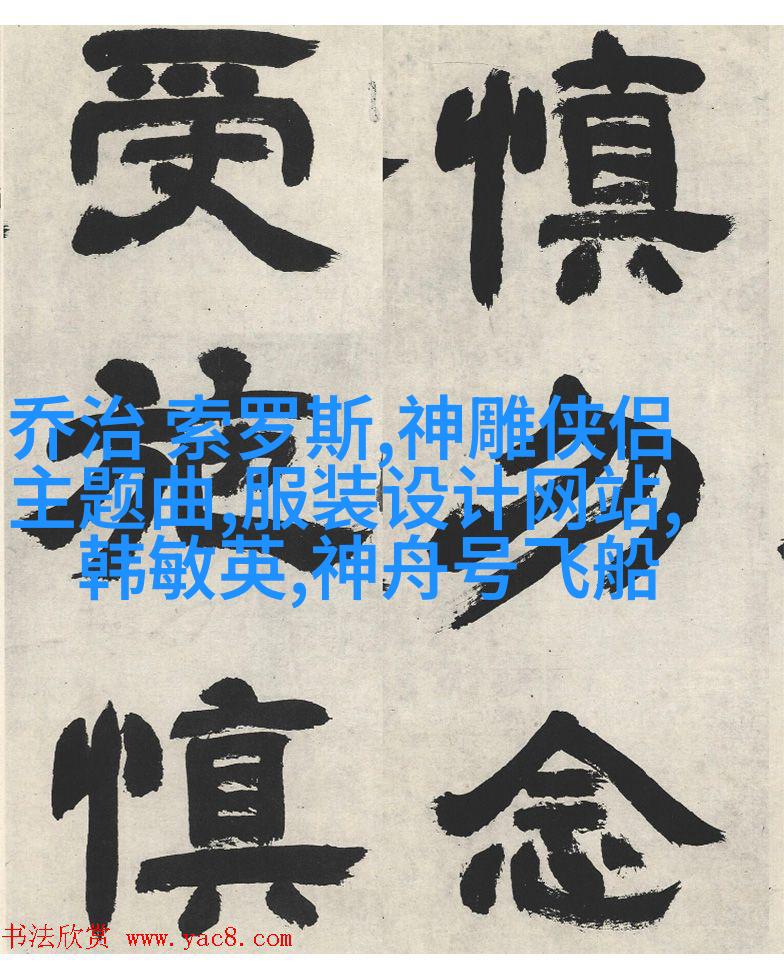 慎勿念
受施慎
乔治 索罗斯,神雕侠侣
主题曲,服装设计网站,
韩敏英,神舟号飞船
书法欣赏 www.yac8.com